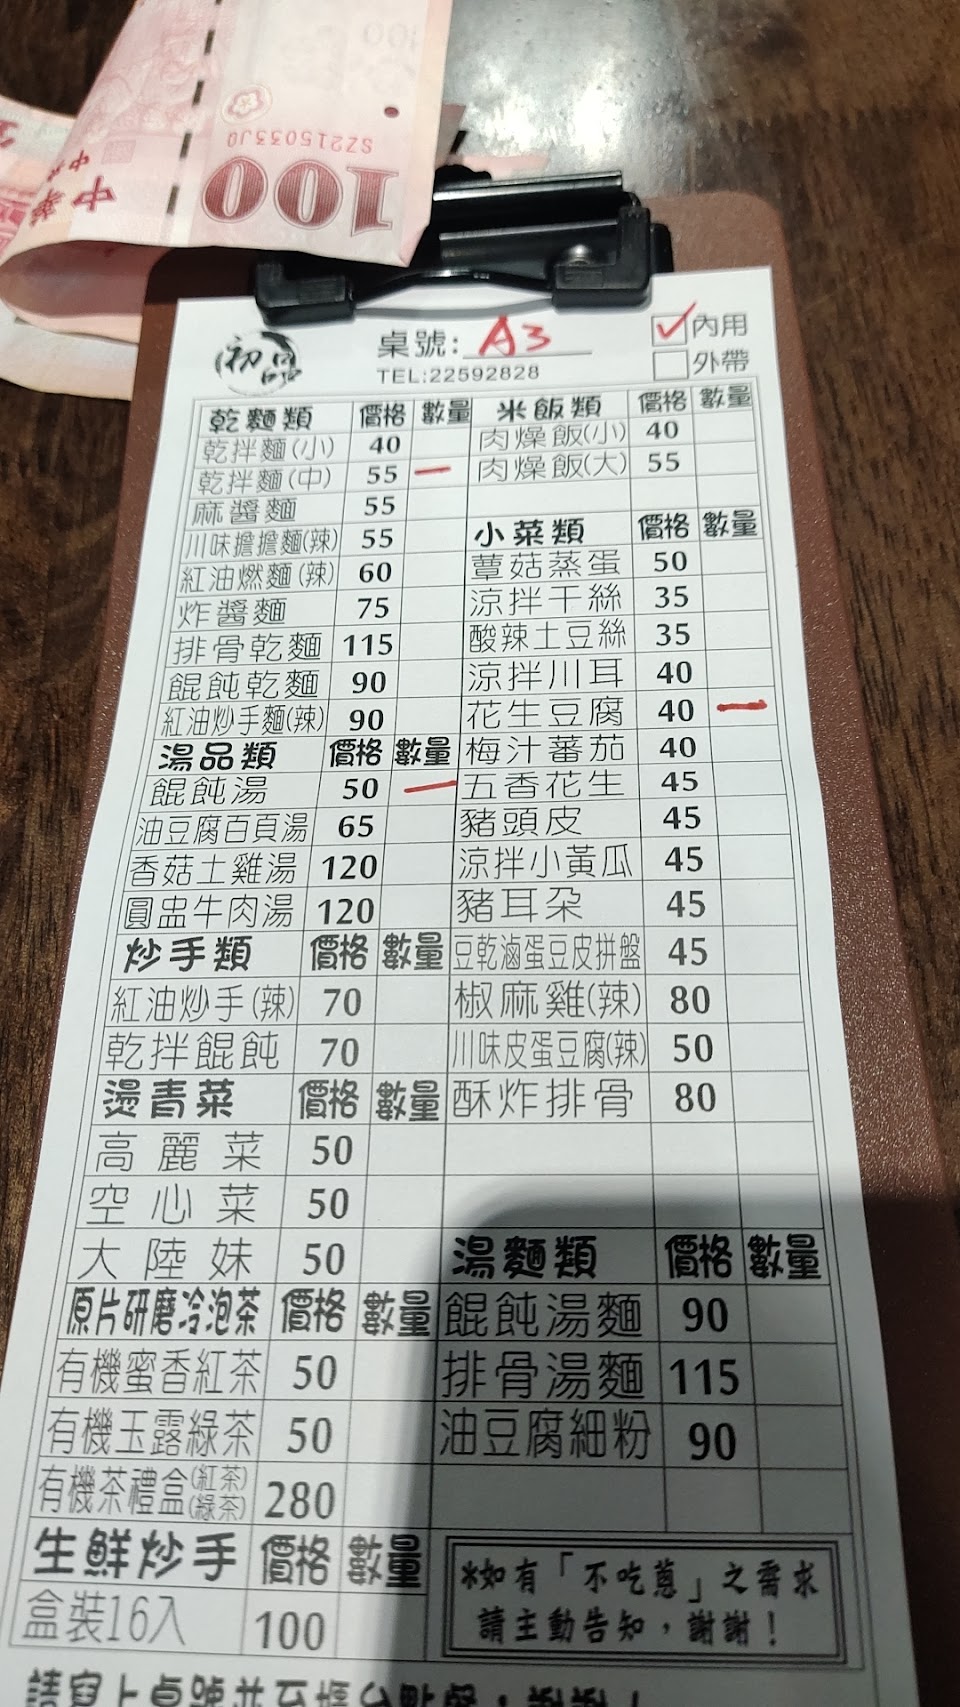 100
SZ215033JQ
100
初品
桌號: A3
內用
TEL:22592828
外帶
乾麵類 價格 數量
乾拌麵(小) 40
乾拌麵(中) 55 一
麻醬麵 55
川味擔擔麵(辣) 55
紅油燃麵(辣) 60
炸醬麵 75
排骨乾麵 115
餛飩乾麵 90
紅油炒手麵(辣) 90
湯品類 價格 數量
餛飩湯 50 一
油豆腐百頁湯 65
香菇土雞湯 120
圓盅牛肉湯 120
炒手類 價格 數量
紅油炒手(辣) 70
乾拌餛飩 70
燙青菜 價格 數量
高麗菜 50
空心菜 50
大陸妹 50
原片研磨冷泡茶 價格 數量
有機蜜香紅茶 50
有機玉露綠茶 50
有機茶禮盒(紅茶)(綠茶) 280
生鮮炒手 價格 數量
盒裝16入 100
米飯類 價格 數量
肉燥飯(小) 40
肉燥飯(大) 55
小菜類 價格 數量
蕈菇蒸蛋 50
涼拌干絲 35
酸辣土豆絲 35
涼拌川耳 40
花生豆腐 40 一
梅汁蕃茄 40
五香花生 45
豬頭皮 45
涼拌小黃瓜 45
豬耳朵 45
豆乾滷蛋豆皮拼盤 45
椒麻雞(辣) 80
川味皮蛋豆腐(辣) 50
酥炸排骨 80
湯麵類 價格 數量
餛飩湯麵 90
排骨湯麵 115
油豆腐細粉 90
*如有「不吃蔥」之需求
請主動告知，謝謝！
請寫上桌號並至櫃台點餐，謝謝！